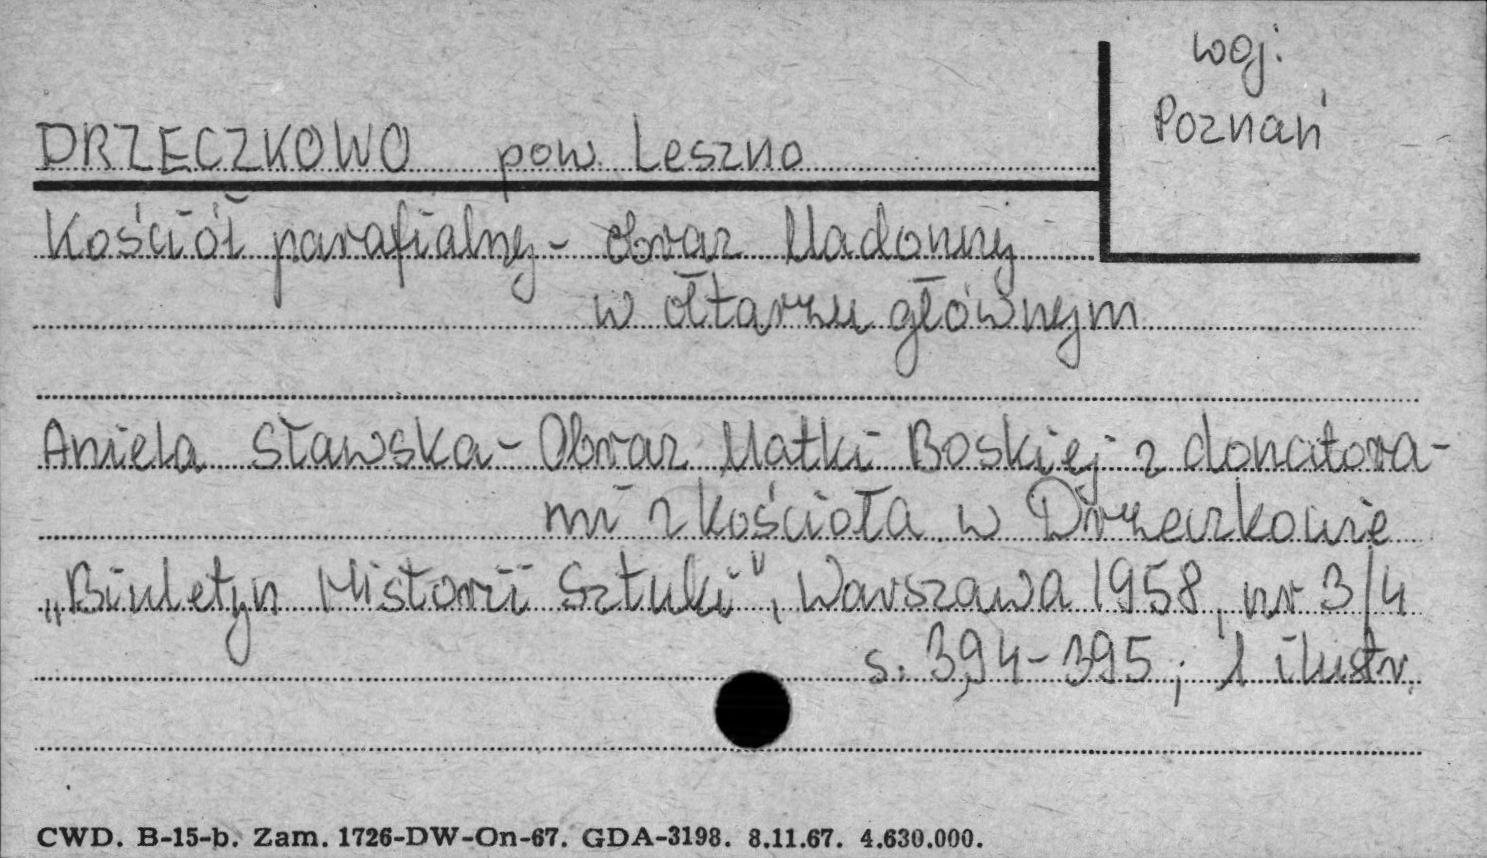 woj.
Poznań
DRZECZKOWO pow. Leszno
Kościół parafialny - obraz Madonny
w ołtarzu głównym
Aniela Sławska - Obraz Matki Boskiej z donatora-
mi z kościoła w Drzeczkowie
„Biuletyn Historii Sztuki", Warszawa 1958, nr 3/4
s. 394-395; 1 ilustr.
CWD. B-15-b. Zam. 1726-DW-On-67. GDA-3198. 8.11.67. 4.630.000.